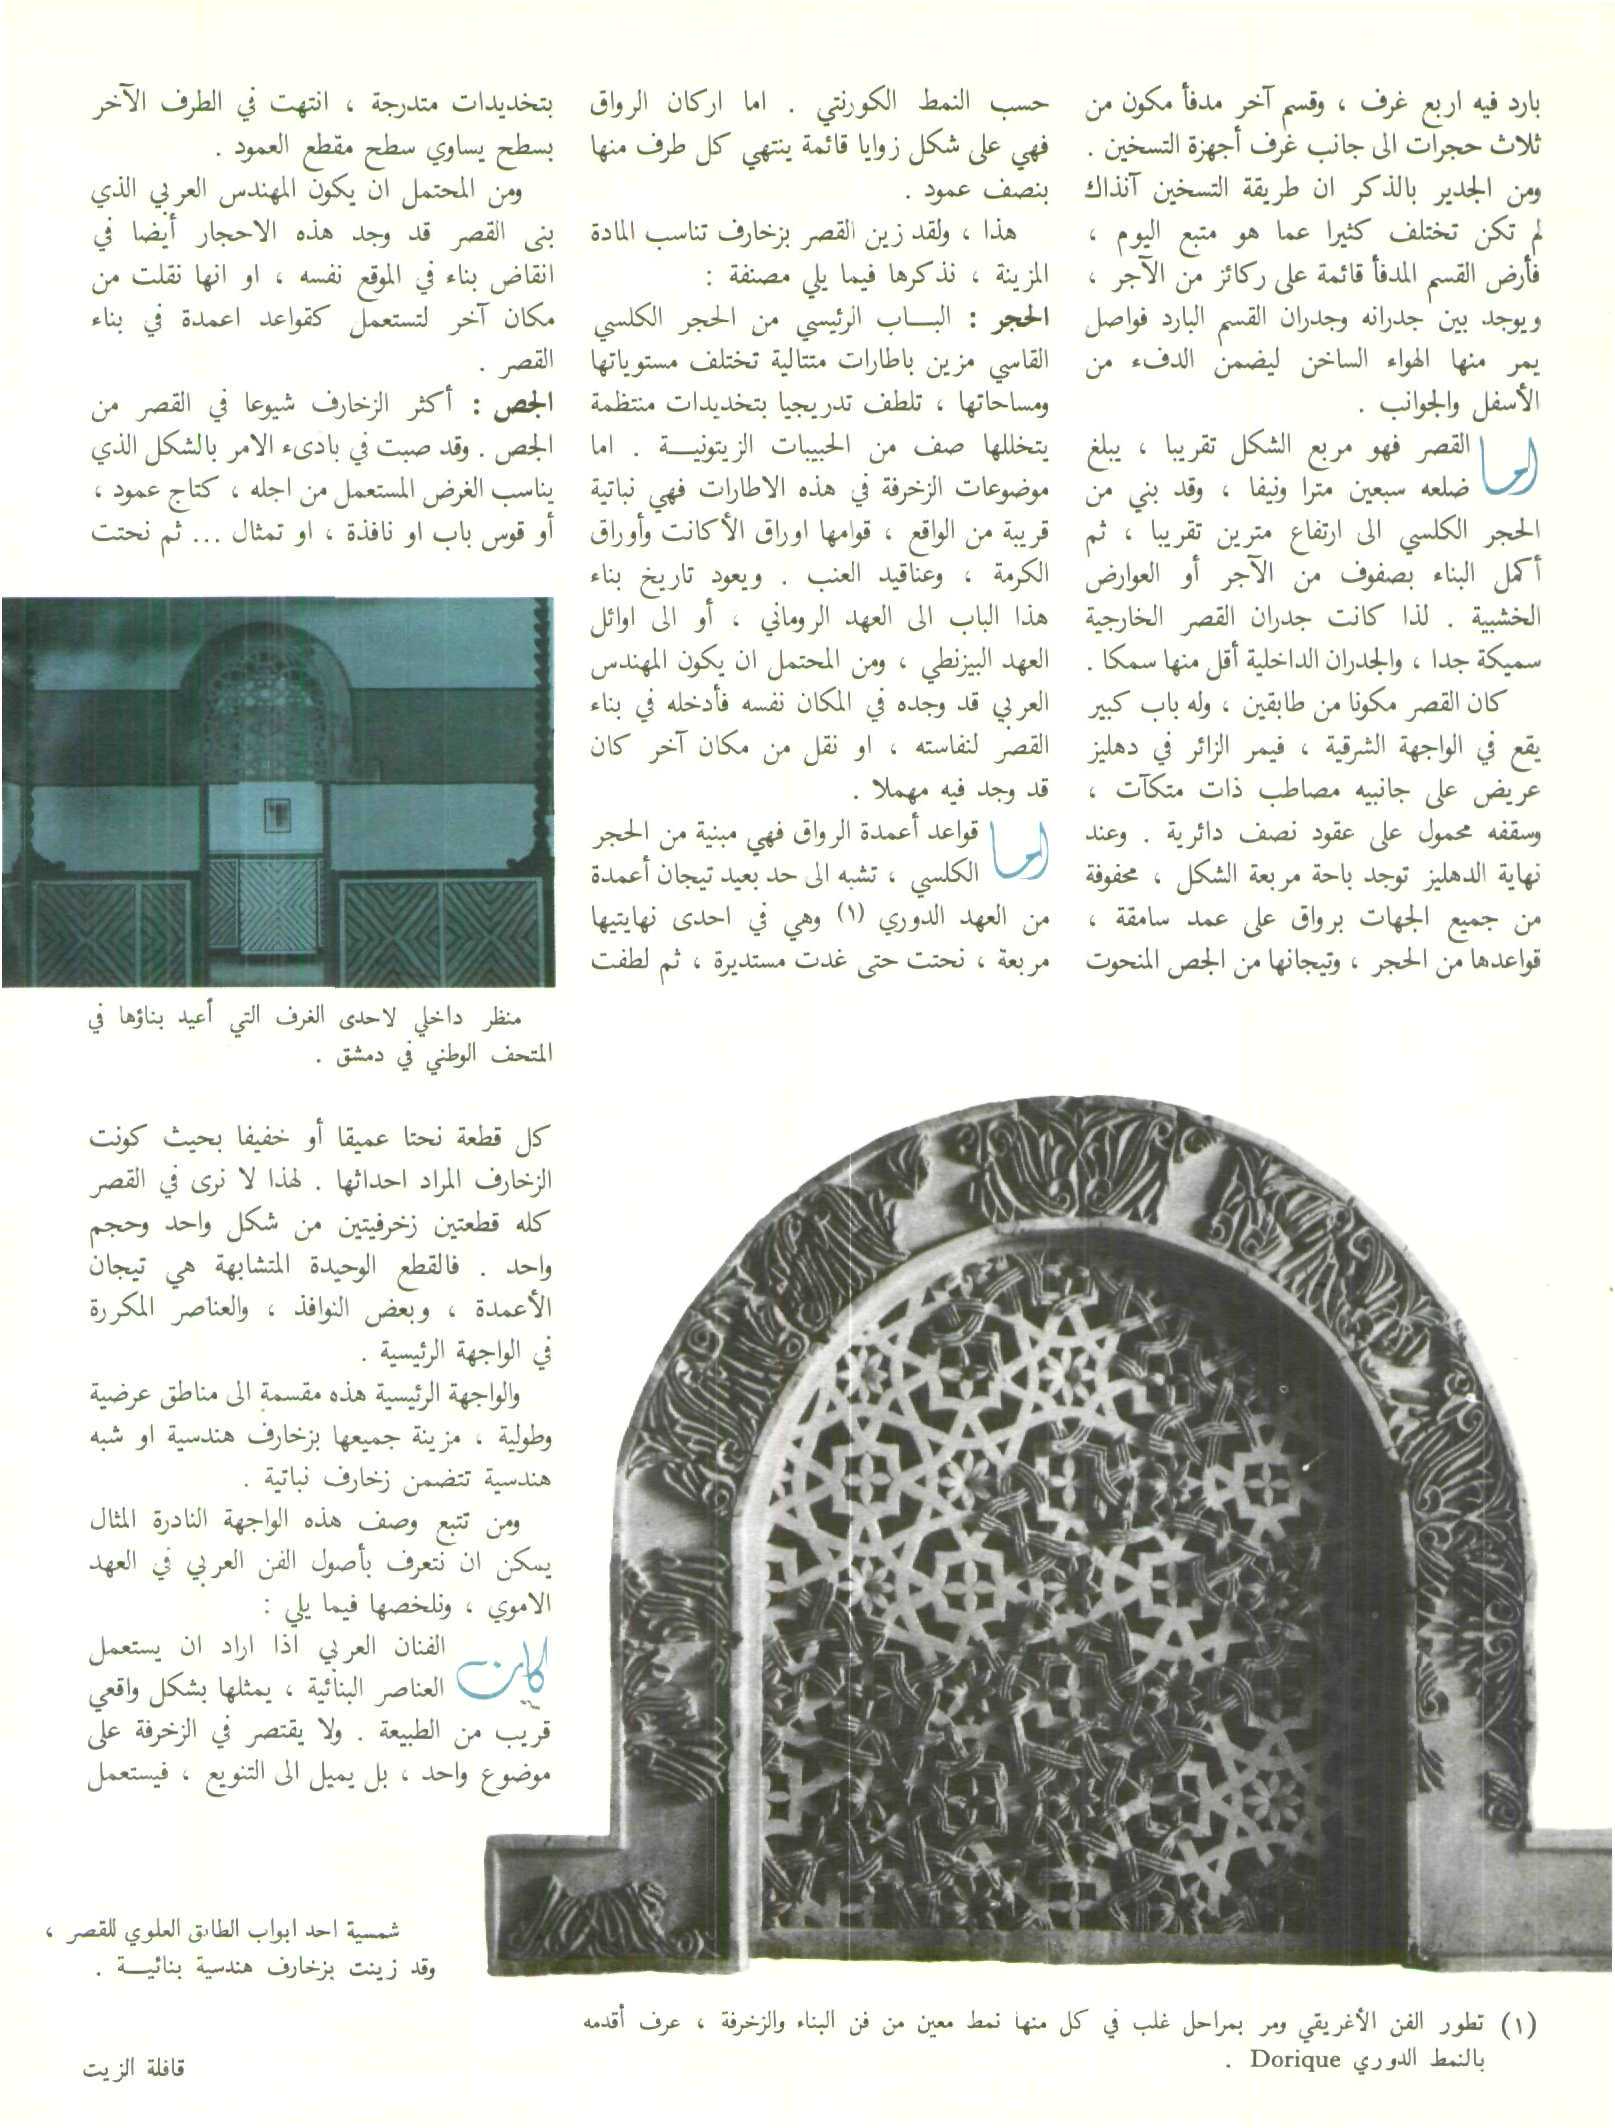 بارد فيه اربع غرف ، وقسم آخر مدفأ مكون من
ثلاث حجرات الى جانب غرف أجهزة التسخين .
ومن الجدير بالذكر ان طريقة التسخين آنذاك
لم تكن تختلف كثيرا عما هو متبع اليوم ،
فأرض القسم المدفأ قائمة على ركائز من الآجر ،
ويوجد بين جدرانه وجدران القسم البارد فواصل
يمر منها الهواء الساخن ليضمن الدفء من
الأسفل والجوانب .
اما القصر فهو مربع الشكل تقريبا ، يبلغ
ضلعه سبعين مترا ونيفا ، وقد بني من
الحجر الكلسي الى ارتفاع مترين تقريبا ، ثم
أكمل البناء بصفوف من الآجر أو العوارض
الخشبية . لذا كانت جدران القصر الخارجية
سميكة جدا ، والجدران الداخلية أقل منها سمكا .
كان القصر مكونا من طابقين ، وله باب كبير
يقع في الواجهة الشرقية ، فيمر الزائر في دهليز
عريض على جانبيه مصاطب ذات متكآت ،
وسقفه محمول على عقود نصف دائرية . وعند
نهاية الدهليز توجد باحة مربعة الشكل ، محفوفة
من جميع الجهات برواق على عمد سامقة ،
قواعدها من الحجر ، وتيجانها من الجص المنحوت
حسب النمط الكورنتي . اما اركان الرواق
فهي على شكل زوايا قائمة ينتهي كل طرف منها
بنصف عمود .
هذا ، ولقد زين القصر بزخارف تناسب المادة
المزينة ، نذكرها فيما يلي مصنفة :
الحجر : البـــاب الرئيسي من الحجر الكلسي
القاسي مزين باطارات متتالية تختلف مستوياتها
ومساحاتها ، تلطف تدريجيا بتخديدات منتظمة
يتخللها صف من الحبيبات الزيتونيـــة . اما
موضوعات الزخرفة في هذه الاطارات فهي نباتية
قريبة من الواقع ، قوامها اوراق الأكانت وأوراق
الكرمة ، وعناقيد العنب . ويعود تاريخ بناء
هذا الباب الى العهد الروماني ، أو الى اوائل
العهد البيزنطي ، ومن المحتمل ان يكون المهندس
العربي قد وجده في المكان نفسه فأدخله في بناء
القصر لنفاسته ، او نقل من مكان آخر كان
قد وجد فيه مهملا .
اما قواعد أعمدة الرواق فهي مبنية من الحجر
الكلسي ، تشبه الى حد بعيد تيجان أعمدة
من العهد الدوري (١) وهي في احدى نهايتيها
مربعة ، نحتت حتى غدت مستديرة ، ثم لطفت
بتخديدات متدرجة ، انتهت في الطرف الآخر
بسطح يساوي سطح مقطع العمود .
ومن المحتمل ان يكون المهندس العربي الذي
بنى القصر قد وجد هذه الاحجار أيضا في
انقاض بناء في الموقع نفسه ، او انها نقلت من
مكان آخر لتستعمل كقواعد اعمدة في بناء
القصر .
الجص : أكثر الزخارف شيوعا في القصر من
الجص . وقد صبت في بادىء الامر بالشكل الذي
يناسب الغرض المستعمل من اجله ، كتاج عمود ،
أو قوس باب او نافذة ، او تمثال ... ثم نحتت
منظر داخلي لاحدى الغرف التي أعيد بناؤها في
المتحف الوطني في دمشق .
كل قطعة نحتا عميقا أو خفيفا بحيث كونت
الزخارف المراد احداثها . لهذا لا نرى في القصر
كله قطعتين زخرفيتين من شكل واحد وحجم
واحد . فالقطع الوحيدة المتشابهة هي تيجان
الأعمدة ، وبعض النوافذ ، والعناصر المكررة
في الواجهة الرئيسية .
والواجهة الرئيسية هذه مقسمة الى مناطق عرضية
وطولية ، مزينة جميعها بزخارف هندسية او شبه
هندسية تتضمن زخارف نباتية .
ومن تتبع وصف هذه الواجهة النادرة المثال
يمكن ان نتعرف بأصول الفن العربي في العهد
الاموي ، ونلخصها فيما يلي :
كان الفنان العربي اذا اراد ان يستعمل
العناصر البنائية ، يمثلها بشكل واقعي
قريب من الطبيعة . ولا يقتصر في الزخرفة على
موضوع واحد ، بل يميل الى التنويع ، فيستعمل
شمسية احد ابواب الطابق العلوي للقصر ،
وقد زينت بزخارف هندسية بنائيـــة .
(١) تطور الفن الأغريقي ومر بمراحل غلب في كل منها نمط معين من فن البناء والزخرفة ، عرف أقدمه
بالنمط الدوري Dorique .
قافلة الزيت